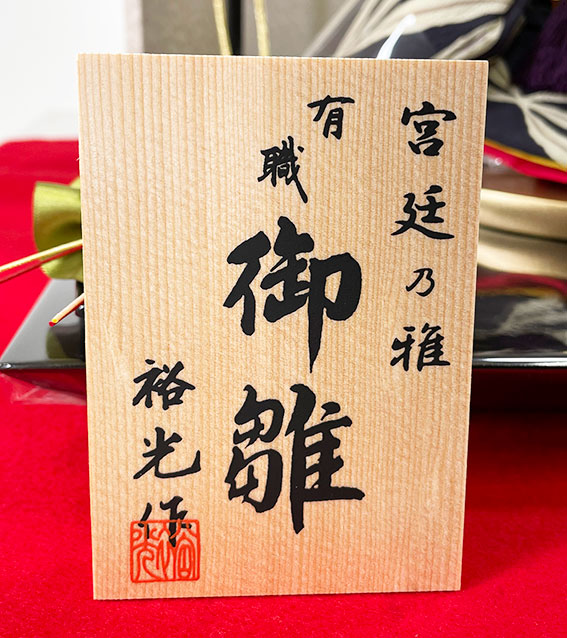 宮廷乃雅
有職
御雛
裕光作